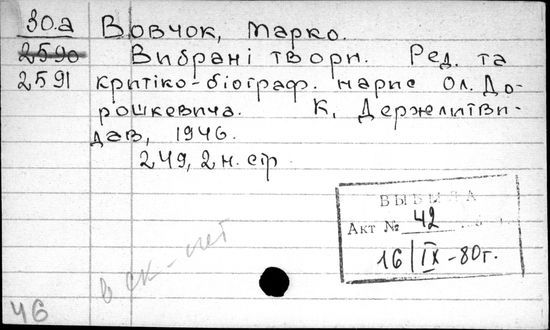 30.а Вовчок, Марко.
2590 Вибрані твори. Ред. та
2591 критіко-біограф. нарис Ол. До-
рошкевича. К, Держлитви-
дав, 1946.
249, 2 н. стр.
ВЫБЫЛА
Акт № 42
16/IX-80г.
в ск-нет
46